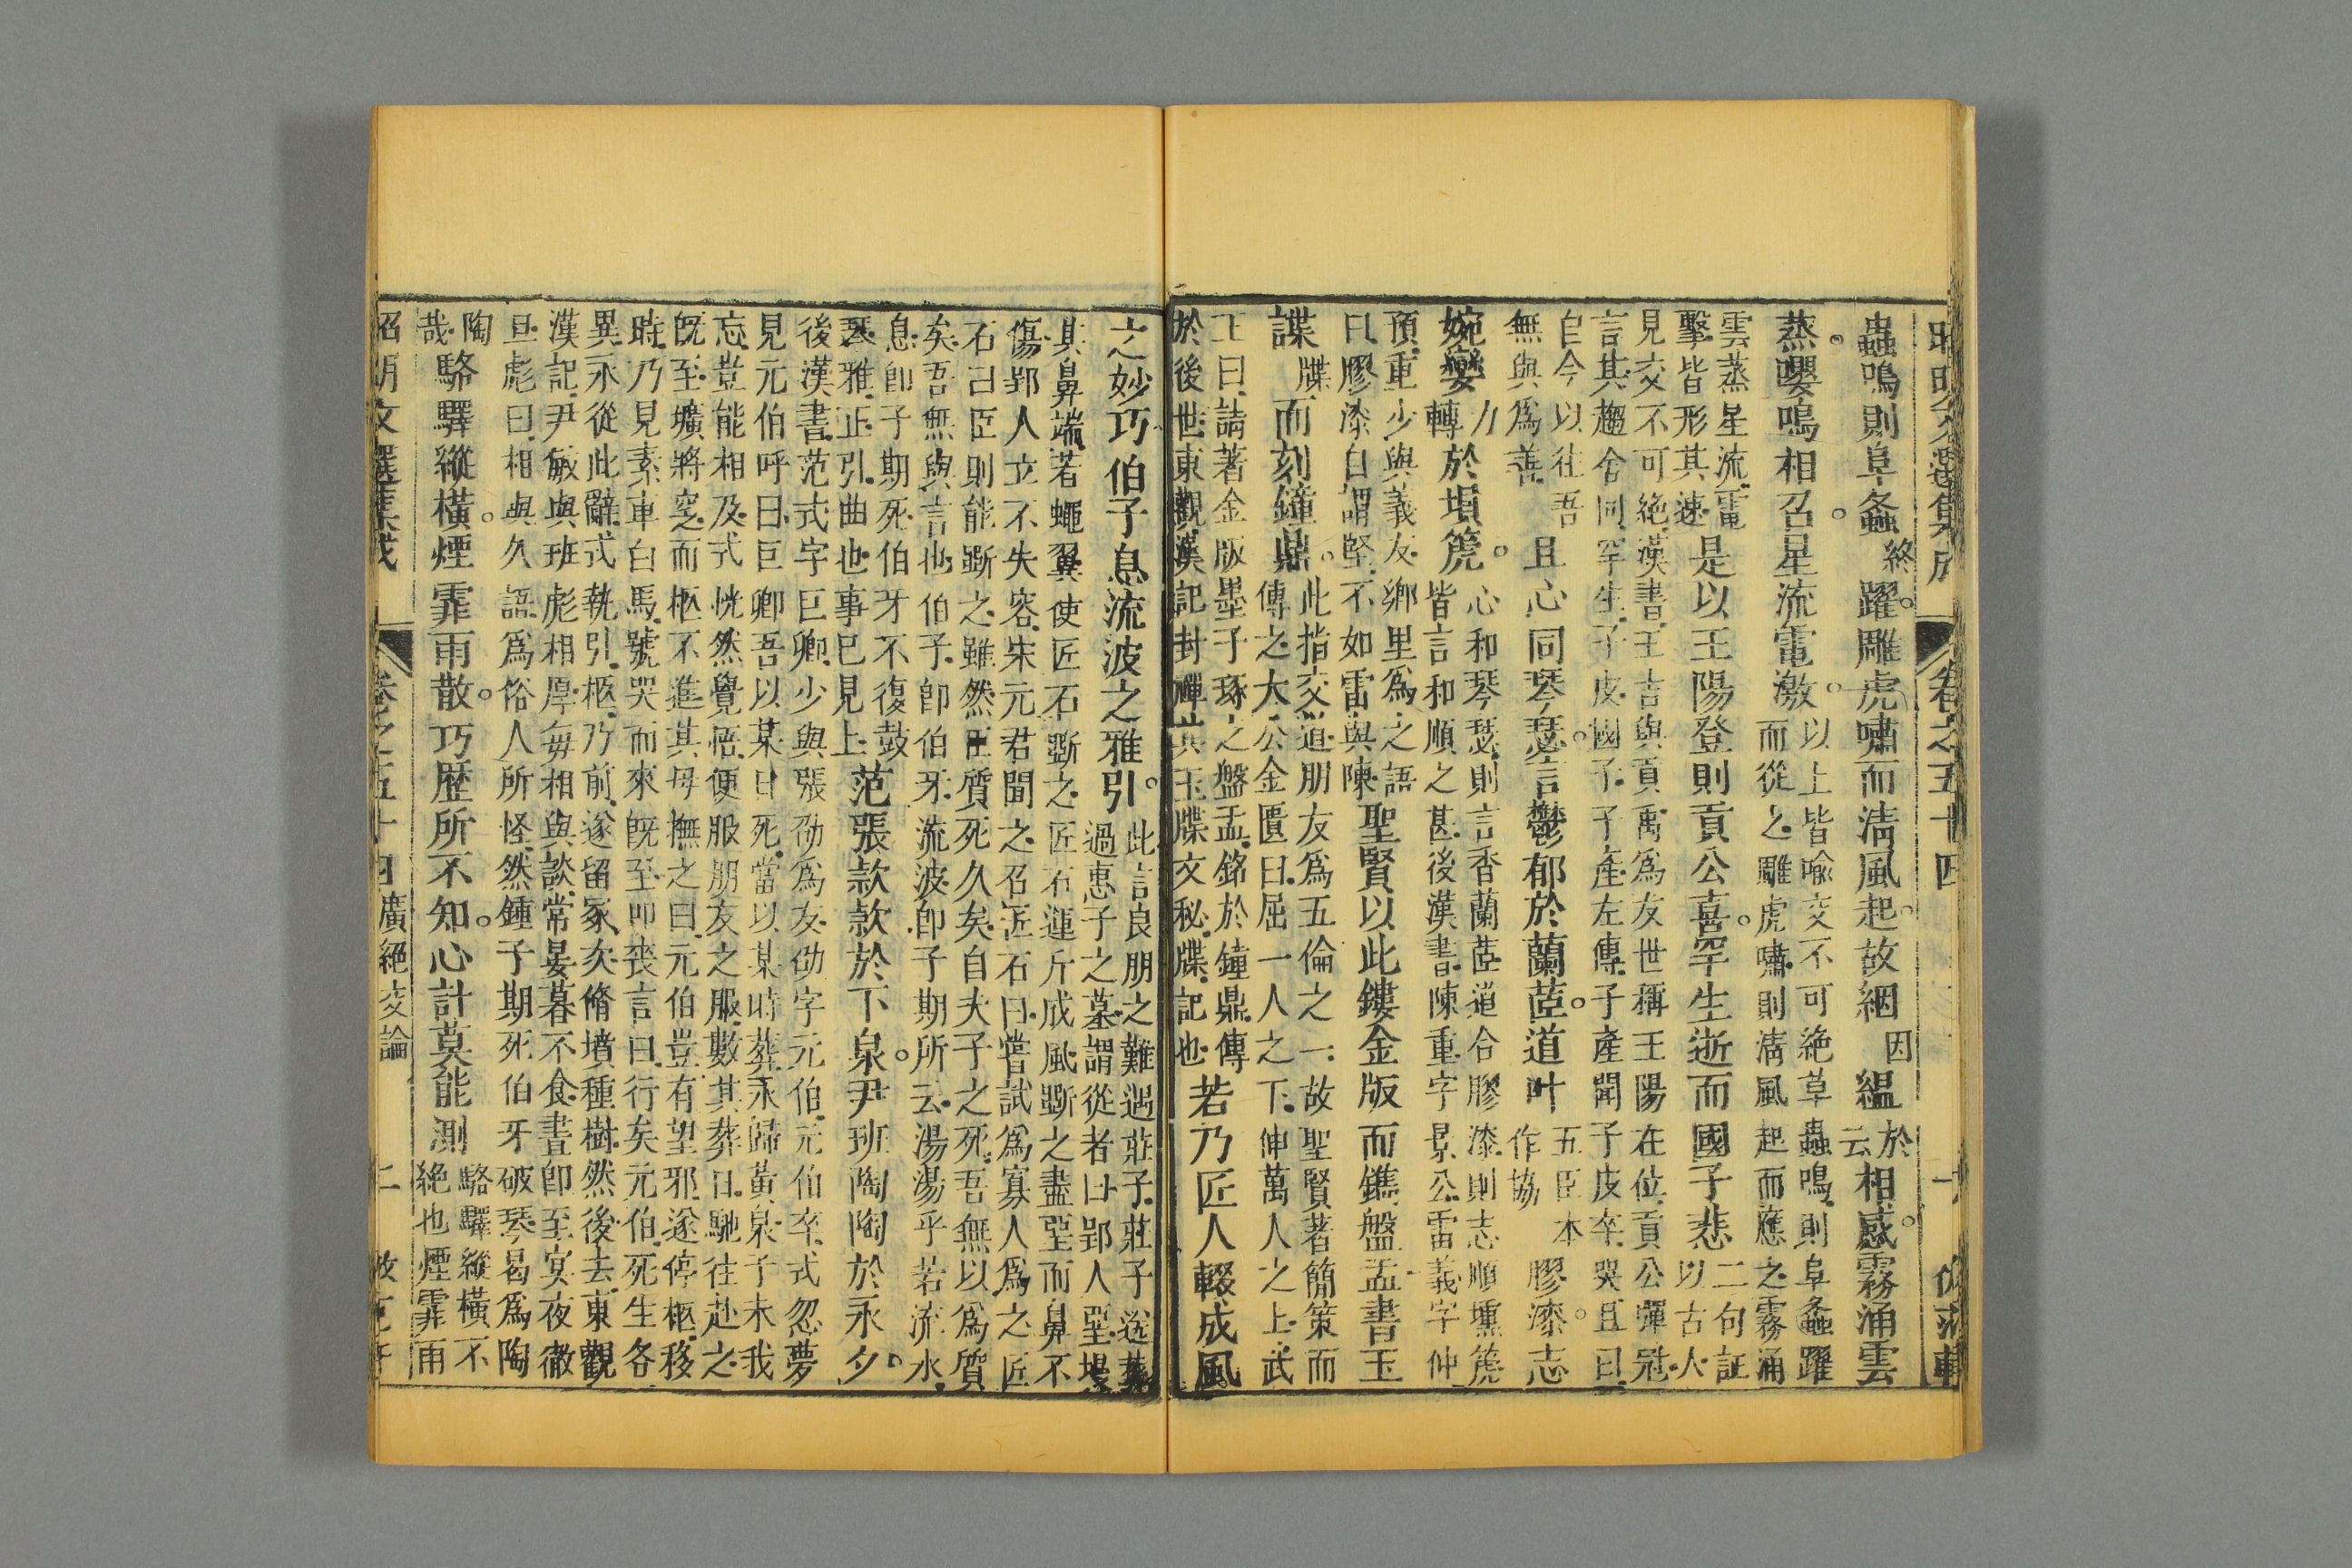 昭明文選集成 卷之五十四
蟲鳴則阜螽終躍。雕虎嘯而清風起。故絪因緼於云相感。霧涌雲
蒸。嚶鳴相召。星流電激。以上皆喻交不可絕草蟲鳴則阜螽躍
而從之雕虎嘯則清風起而應之霧涌
雲蒸星流電
擊皆形其速是以王陽登則貢公喜。罕生逝而國子悲二句証
以古人
見交不可絕漢書王吉與貢禹爲友世稱王陽在位貢公彈冠
言其趨舍同罕生子皮國子子產左傳子產聞子皮卒哭且曰
自今以往吾
無與爲善且心同琴瑟。言鬱郁於蘭茝。道叶五臣本
作協膠漆。志
婉孌力
轉於塤篪。心和琴瑟則言香蘭茝道合膠漆則志順壎篪
皆言和順之甚後漢書陳重字景公雷義字仲
預重少與義友鄉里爲之語
曰膠漆自謂堅不如雷與陳聖賢以此鏤金版而鐫盤盂書玉
諜牒而刻鐘鼎。此指交道朋友爲五倫之一故聖賢著簡策而
傳之太公金匱曰屈一人之下伸萬人之上武
王曰請著金版墨子琢之盤盂銘於鐘鼎傳
於後世東觀漢記封禪其玉牒文秘牒記也若乃匠人輟成風
之妙巧伯子息流波之雅引。此言良朋之難遇莊子莊子送葬
過惠子之墓謂從者曰郢人堊墁
其鼻端若蠅翼使匠石斲之匠石運斤成風斲之盡堊而鼻不
傷郢人立不失容宋元君聞之召匠石曰嘗試爲寡人爲之匠
石曰臣則能斲之雖然臣質死久矣自夫子之死吾無以爲質
矣吾無與言也伯子卽伯牙流波卽子期所云湯湯乎若流水
息卽子期死伯牙不復鼓
琴雅正引曲也事已見上范張款款於下泉。尹班陶陶於永夕。
後漢書范式字巨卿少與張劭爲友劭字元伯元伯卒式忽夢
見元伯呼曰巨卿吾以某日死當以某時葬永歸黃泉子未我
忘豈能相及式恍然覺悟便服朋友之服數其葬日馳往赴之
旣至壙將窆而柩不進其母撫之曰元伯豈有望邪遂停柩移
時乃見素車白馬號哭而來旣至叩喪言曰行矣元伯死生各
異永從此辭式執引柩乃前遂留冢次脩墳種樹然後去東觀
漢記尹敏與班彪相厚每相與談常晏暮不食晝卽至冥夜徹
旦彪曰相與久語爲俗人所怪然鍾子期死伯牙破琴曷爲陶
陶
哉駱驛縱橫。煙霏雨散。巧歷所不知。心計莫能測駱驛縱橫不
絕也煙霏雨
昭明文選集成 卷之五十四 廣絕交論